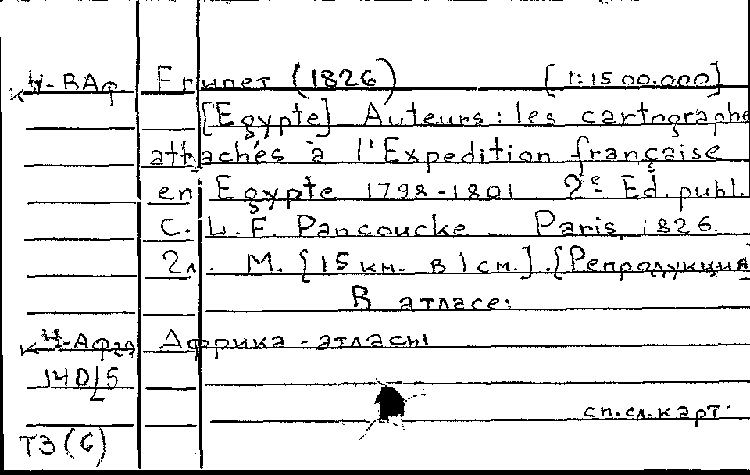 К Ч-ВАф Египет (1826) [1:1500.000]
[Egypte] Auteurs: les cartographe
attachés à l'Expedition française
en Egypte 1798-1801 2ᵉ Ed. publ.
C. L. F. Pancoucke Paris, 1826.
2л. М. [15 км. в 1 см.]. [Репродукция
В атласе:
Африка - атласы
14D/5
сл. сл. карт.
Т3 (6)